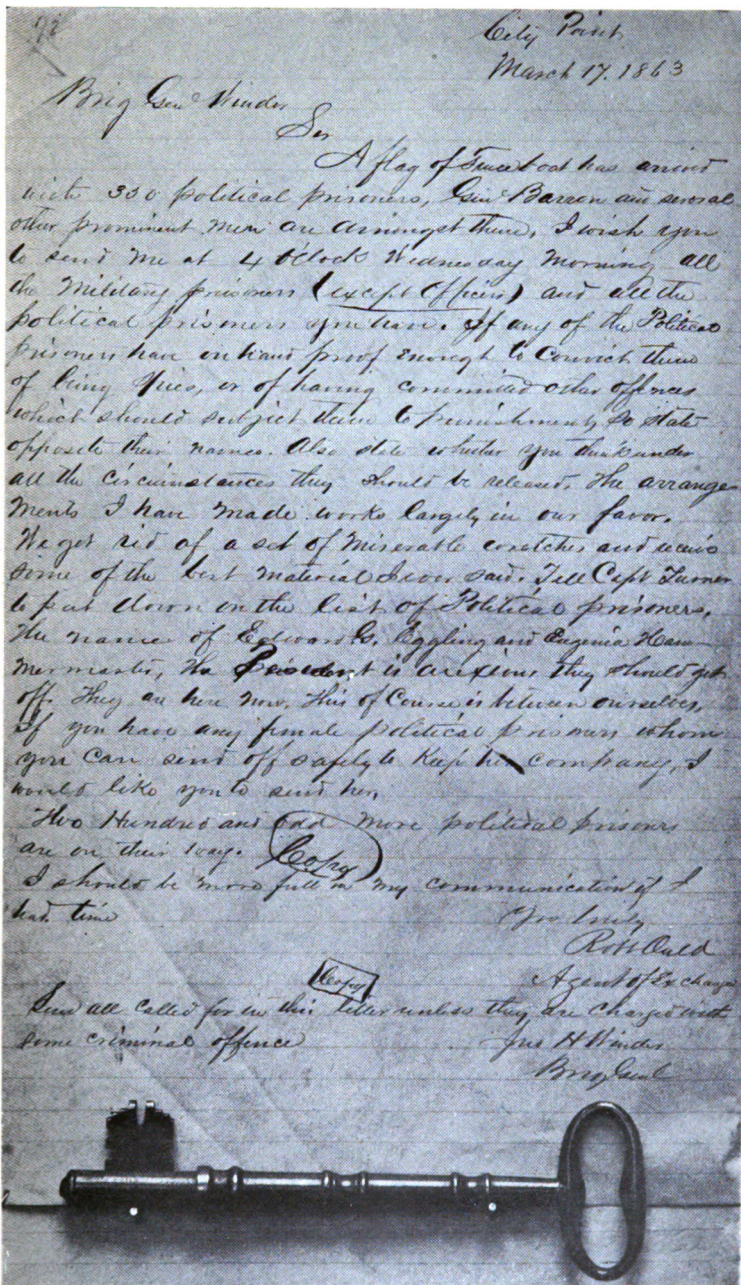 City Point
March 17. 1863
Brig Genl Winder
Sir
A flag of Truce boat has arrived
with 350 political prisoners, Genl Barron and several
other prominent men are amongst them, I wish you
to send me at 4 O'Clock Wednesday Morning all
the Military prisoners (except Officers) and all the
political prisoners you have. If any of the Political
prisoners have on hand proof enough to Convict them
of being spies, or of having committed other offences
which should subject them to punishment, so state
opposite their names. Also state whether you think under
all the circumstances they should be released. The arrange
ments I have made works largely in our favor.
We get rid of a set of Miserable wretches and receive
some of the best material I ever saw. Tell Capt Turner
to put down on the list of Political prisoners,
the name of Edward G. Eggling and Eugenia Ham
mermaster, the President is anxious they should get
off. They are here now. This of Course is between ourselves,
If you have any female political prisoners whom
you can send off safely to Keep her company, I
would like you to send her,
Two Hundred and odd more political prisoners
are on their way.
Copy
I should be more full in my communication if I
had time
Yrs truly
Ro Ould
Agent of Exchange
Copy
Send all called for in this letter unless they are charged with
some criminal offence
Jno H Winder
Brig Genl